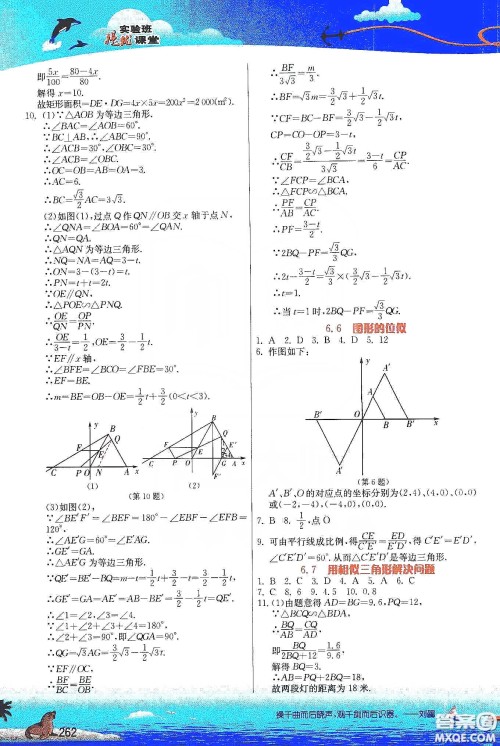 实验班
提优课堂
即5x/100=(80-4x)/80.
解得 x=10.
故矩形面积=DE·DG=4x×5x=200x²=2 000(m²).
10. (1)∵△AOB为等边三角形.
∴∠BAC=∠AOB=60°.
∵BC⊥AB,∴∠ABC=90°.
∴∠ACB=30°,∠OBC=30°.
∴∠ACB=∠OBC.
∴OC=OB=AB=OA=3.
∴AC=6.
∴BC=√3/2 AC=3√3.
(2)如图(1),过点Q作QN∥OB交x轴于点N,
∴∠QNA=∠BOA=60°=∠QAN.
∴QN=QA.
∴△AQN为等边三角形.
∴NQ=NA=AQ=3-t.
∴ON=3-(3-t)=t.
∴PN=t+t=2t.
∵OE∥QN,
∴△POE∽△PNQ.
∴OE/QN=OP/PN.
∴OE/(3-t)=1/2,OE=3/2-1/2t.
∵EF∥x轴,
∴∠BFE=∠BCO=∠FBE=30°.
∴EF=BE.
∴m=BE=OB-OE=1/2t+3/2(0<t<3).
y B Q F E C P O N A x
(1)
y B Q F E E′ C P O G A x
(2)
(第10题)
(3)如图(2),
∵∠BE′F′=∠BEF=180°-∠EBF-∠EFB=120°.
∴∠AE′G=60°=∠E′AG.
∴GE′=GA.
∴△AE′G为等边三角形.
∵QE′=BE-BQ=m-t=1/2t+3/2-t=3/2-1/2t,
∴GE′=GA=AE′=AB-BE′=3/2-1/2t=QE′.
∴∠1=∠2,∠3=∠4.
∵∠1+∠2+∠3+∠4=180°,
∴∠2+∠3=90°,即∠QGA=90°.
∴QG=√3AG=3√3/2-√3/2t.
∵EF∥OC,
∴BF/BC=BE/BO.
∴BF/3√3=m/3.
∴BF=√3m=3/2√3+√3/2t.
∵CF=BC-BF=3/2√3-√3/2t,
CP=CO-OP=3-t,
∴CF/CB=(3/2√3-√3/2t)/3√3=(3-t)/6=CP/AC.
∵∠FCP=∠BCA,
∴△FCP∽△BCA.
∴PF/AB=CP/AC.
∴PF=(3-t)/2.
∵2BQ-PF=√3/3QG,
∴2t-(3-t)/2=√3/3×(3/2√3-√3/2t).
∴t=1.
∴当t=1时,2BQ-PF=√3/3QG.
6.6 图形的位似
1. A 2. D 3. B 4. D 5. 12
6. 作图如下:
y A′ A B″ O B B′ x A″
(第6题)
A′、B′、O的对应点的坐标分别为(2,4),(4,0),(0,0)
或(-2,-4),(-4,0),(0,0).
7. B 8. 1/2,点O
9. 可由平行线成比例,得CE/C′E′=ED/E′D′,得C′E′=E′D′,∠C′E′D′=60°.从而△C′E′D′是等边三角形.
6.7 用相似三角形解决问题
1. B 2. C 3. D 4. A 5. A 6. C
7. C 8. 9 9. 4.5 10. 0,8
11. (1)由题意得AD=BG=9.6,PQ=12,
∵△BCQ∽△BDA,
∴BQ/BA=BC/BD.
即BQ/(2BQ+12)=1.6/9.6.
解得BQ=3.
∴AB=2BQ+PQ=18.
故两段灯的距离为18米.
操千曲而后晓声,观千剑而后识器。——刘勰
262
答案圈
MXQE.COM